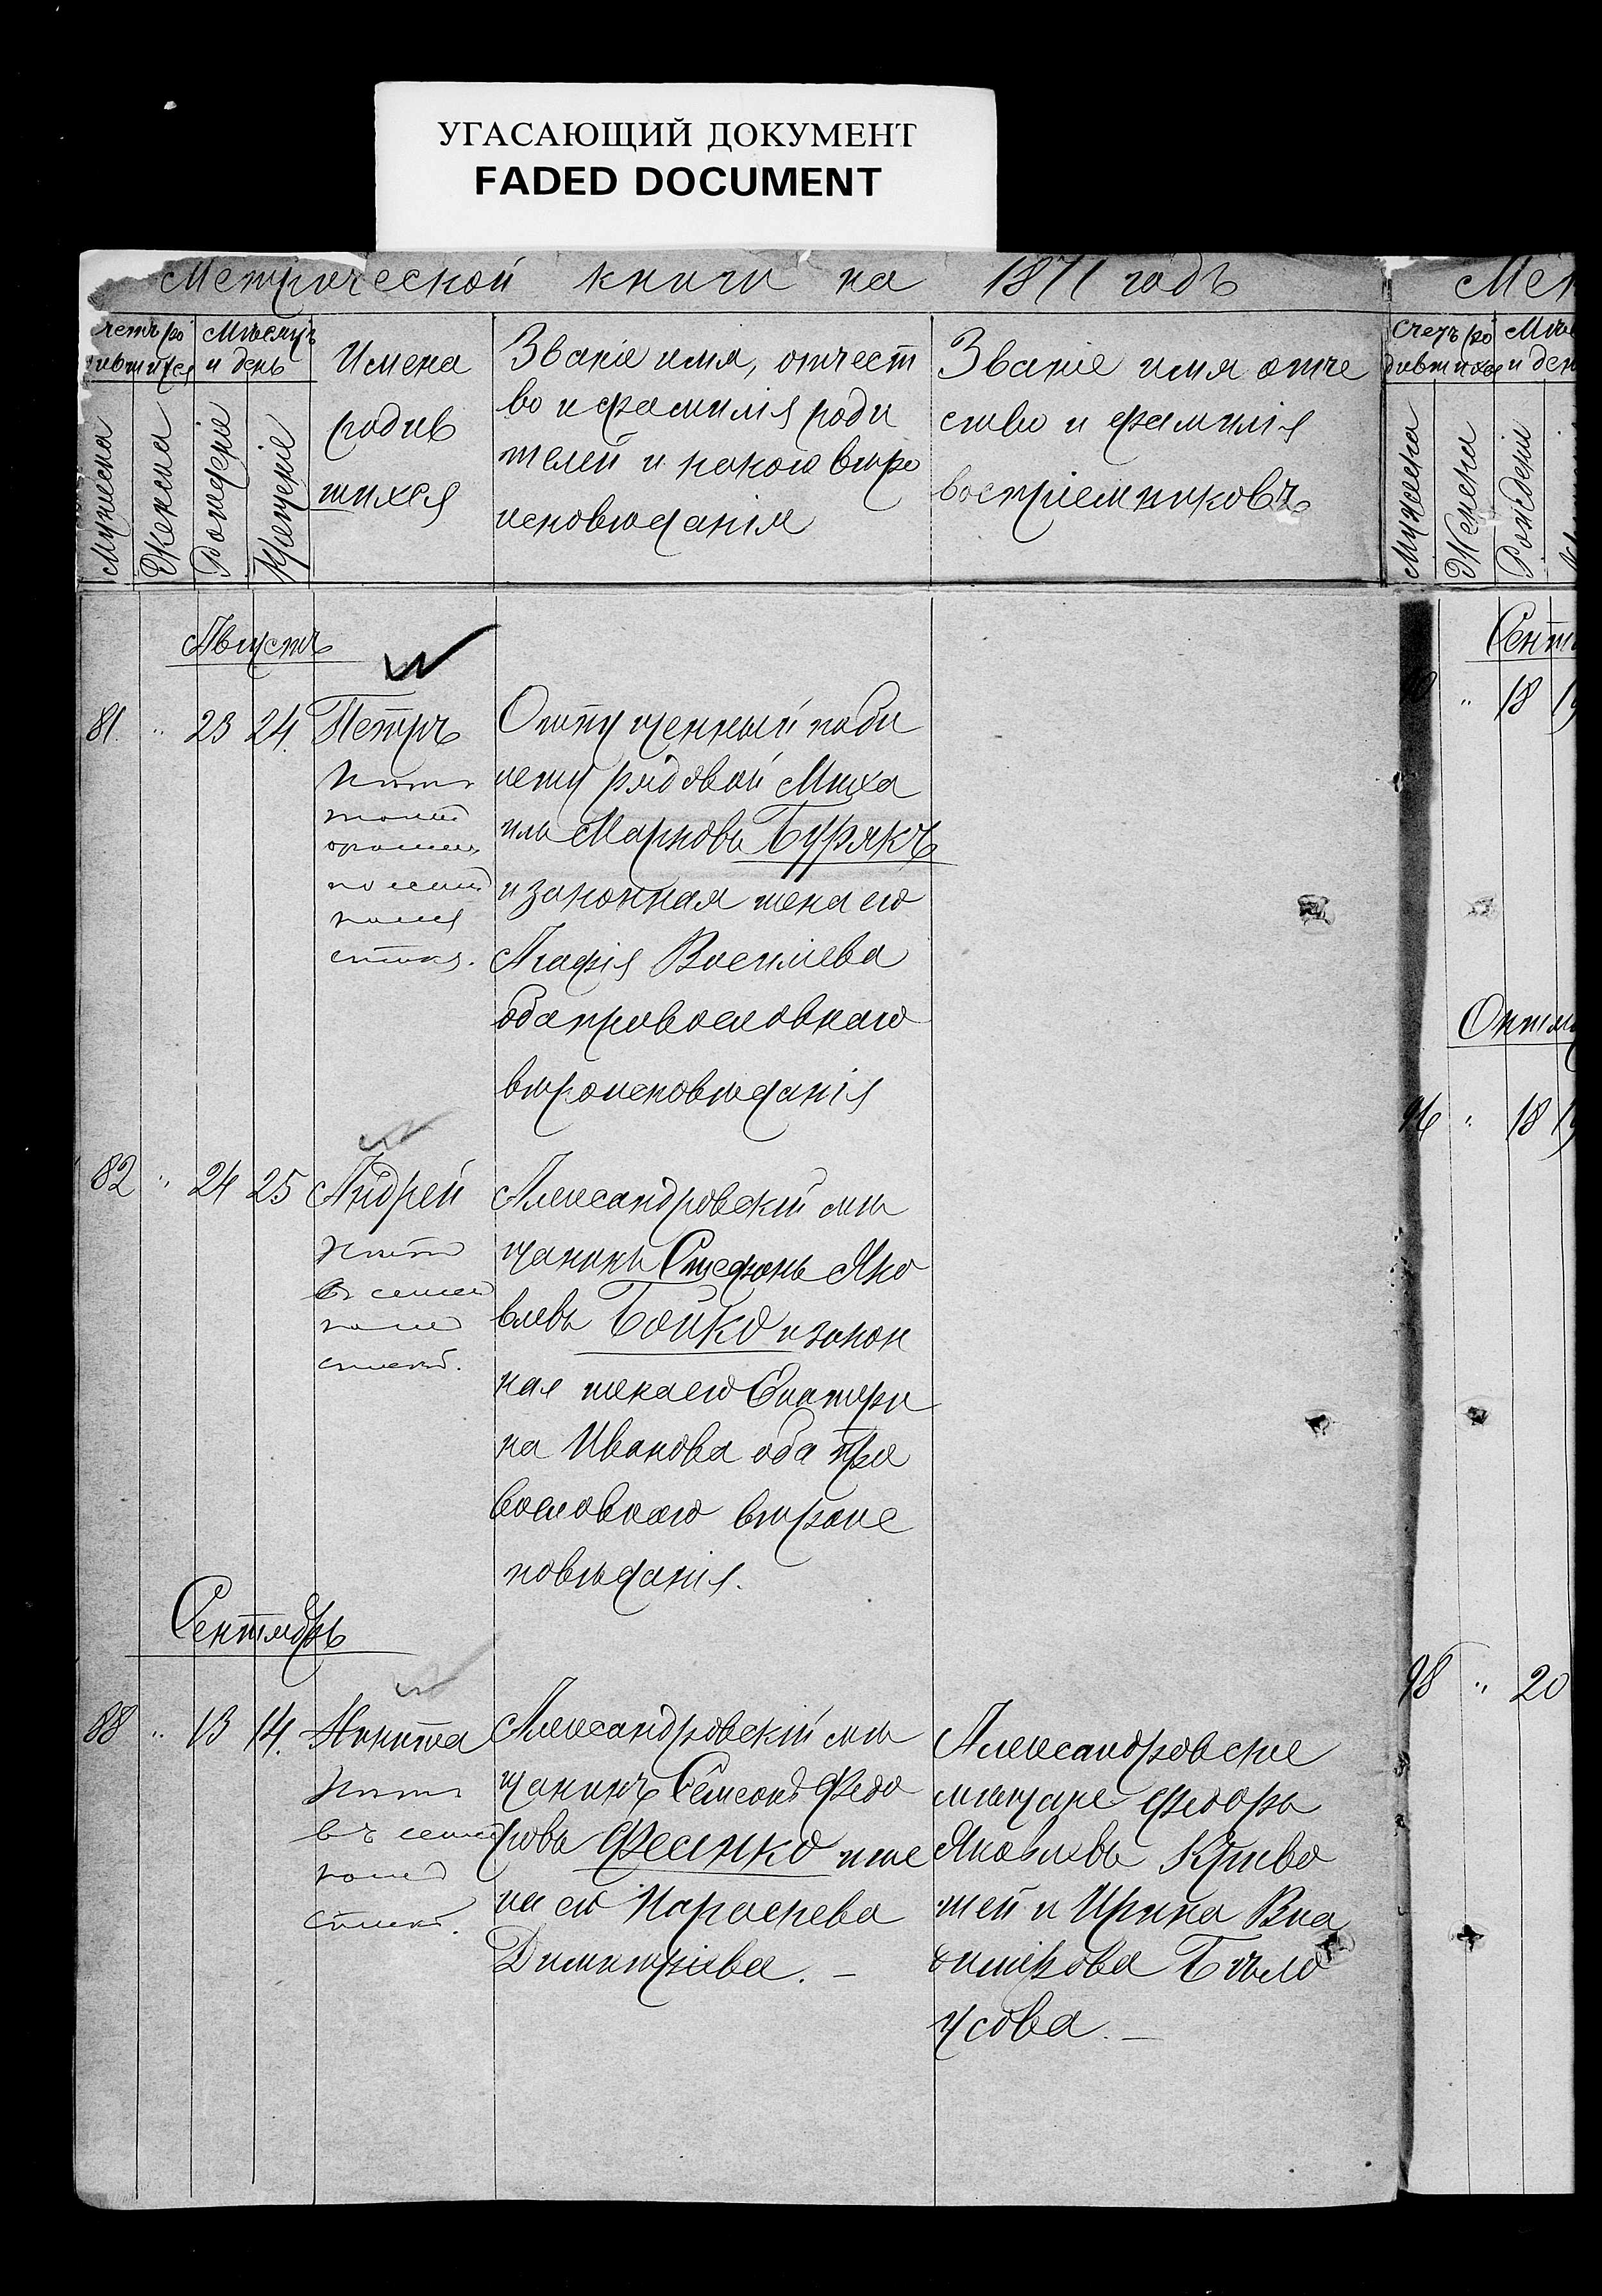 УГАСАЮЩИЙ ДОКУМЕНТ
FADED DOCUMENT
Метрической книги на 1871 годъ
Счетъ ро
дившихся
Мѣсяцъ
и день
Мужеска
Женска
Рожденіе
Крещеніе
Имена
родив
шихся
Званіе имя, отчест
во и фамилія роди
телей и какого вѣро
исповѣданія
Званіе имя отче
ство и фамилія
воспріемниковъ
Августъ
81. " 23 24. Петръ
Отпущенный по би
лету рядовой Миха
илъ Марковъ Бурякъ
и законная жена его
Агафія Василіева
оба православнаго
вѣроисповѣданія
82 " 24 25 Андрей
въ
Александровскій мѣ
щанинъ Стефанъ Яко
влевъ Бойко и закон
ная жена его Екатери
на Иванова оба пра
вославнаго вѣроис
повѣданія.
Сентябрь
88 " 13 14. Никита
въ
Александровскій мѣ
щанинъ Сѵмеонъ Федо
ровъ Фесинко и же
на его Параскева
Димитріева. —
Александровскіе
мѣщане Феодоръ
Яковлевъ Криво
шей и Ирина Вла
димірова Бѣло
усова. —
Мет
Счетъ ро
дившихся
Мѣс
и ден
Мужеска
Женска
Рожденіи
Сентя
" 18 19
Октяб
96 " 18 19
98 " 20